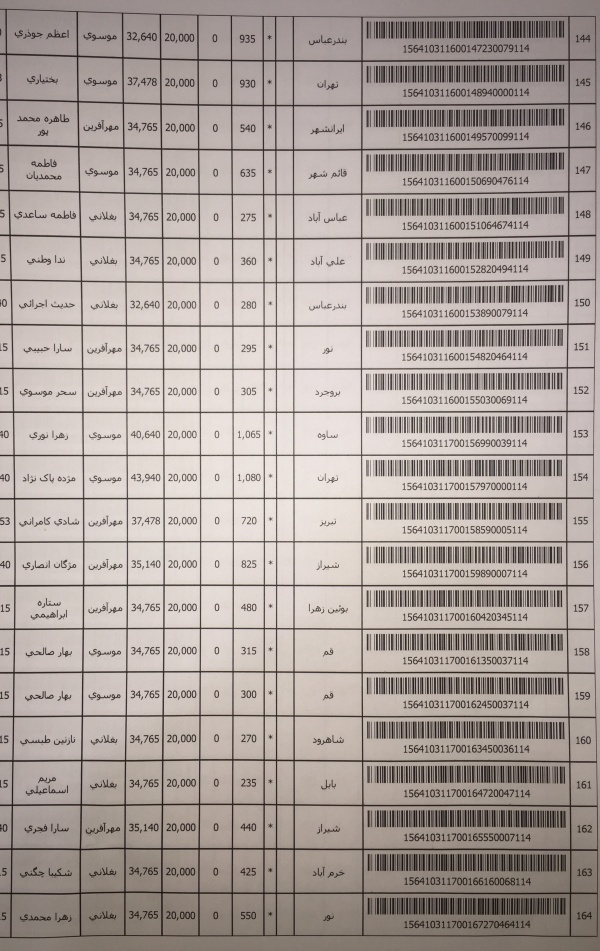 144 156410311600147230079114 بندرعباس * 935 0 20,000 32,640 موسوي اعظم جوذري
145 156410311600148940000114 تهران * 930 0 20,000 37,478 موسوي بختياري
146 156410311600149570099114 ايرانشهر * 540 0 20,000 34,765 مهرآفرين طاهره محمد
پور
147 156410311600150690476114 قائم شهر * 635 0 20,000 34,765 موسوي فاطمه
محمديان
148 156410311600151064674114 عباس آباد * 275 0 20,000 34,765 بغلاني فاطمه ساعدي
149 156410311600152820494114 علي آباد * 360 0 20,000 34,765 بغلاني ندا وطني
150 156410311600153890079114 بندرعباس * 280 0 20,000 32,640 بغلاني حديث اجرائي
151 156410311600154820464114 نور * 295 0 20,000 34,765 مهرآفرين سارا حبيبي
152 156410311600155030069114 بروجرد * 305 0 20,000 34,765 مهرآفرين سحر موسوي
153 156410311700156990039114 ساوه * 1,065 0 20,000 40,640 موسوي زهرا نوري
154 156410311700157970000114 تهران * 1,080 0 20,000 43,940 موسوي مژده پاک نژاد
155 156410311700158590005114 تبريز * 720 0 20,000 37,478 مهرآفرين شادي كامراني
156 156410311700159890007114 شيراز * 825 0 20,000 35,140 مهرآفرين مژگان انصاري
157 156410311700160420345114 بوئين زهرا * 480 0 20,000 34,765 مهرآفرين ستاره
ابراهيمي
158 156410311700161350037114 قم * 315 0 20,000 34,765 موسوي بهار صالحي
159 156410311700162450037114 قم * 300 0 20,000 34,765 موسوي بهار صالحي
160 156410311700163450036114 شاهرود * 270 0 20,000 34,765 بغلاني نازنين طبسي
161 156410311700164720047114 بابل * 235 0 20,000 34,765 بغلاني مريم
اسماعيلي
162 156410311700165550007114 شيراز * 440 0 20,000 35,140 مهرآفرين سارا فجري
163 156410311700166160068114 خرم آباد * 425 0 20,000 34,765 بغلاني شكيبا چگني
164 156410311700167270464114 نور * 550 0 20,000 34,765 بغلاني زهرا محمدي